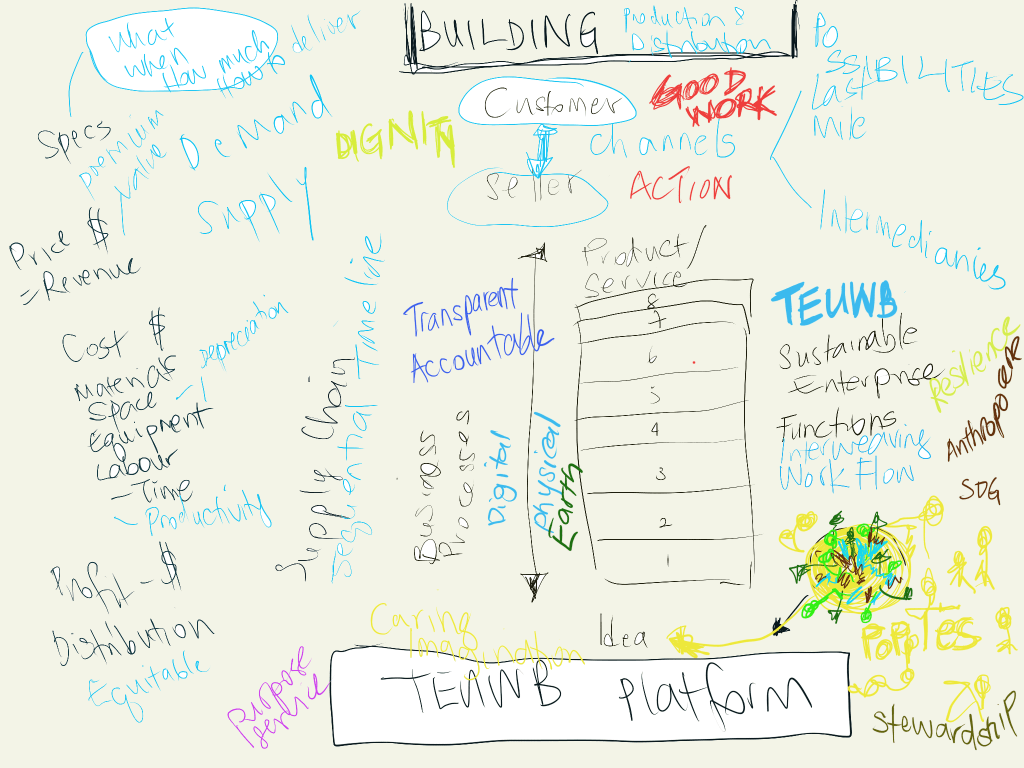 What
when
How much
How to deliver
BUILDING
Production &
Distribution
Po
SSIBILITIES
Last
Mile
Customer
GOOD
WORK
Specs
premium
value
Demand
DIGNITY
channels
Seller
ACTION
Supply
Intermediaries
Price $
= Revenue
Product/
Service
Transparent
Accountable
TEUWB
Sustainable
Enterprise
Functions
Interweaving
Work Flow
Resilience
Anthropocene
SDG
Cost $
Depreciation
Materials
Space
Equipment
Labour
- Time
- Productivity
Supply Chain
Sequential Time line
Business
Processes
Digital
Physical
Earth
8
7
6
5
4
3
2
1
Profit - $
Distribution
Equitable
Purpose
Service
Caring
Imagination
Idea
TEUWB Platform
Stewardship